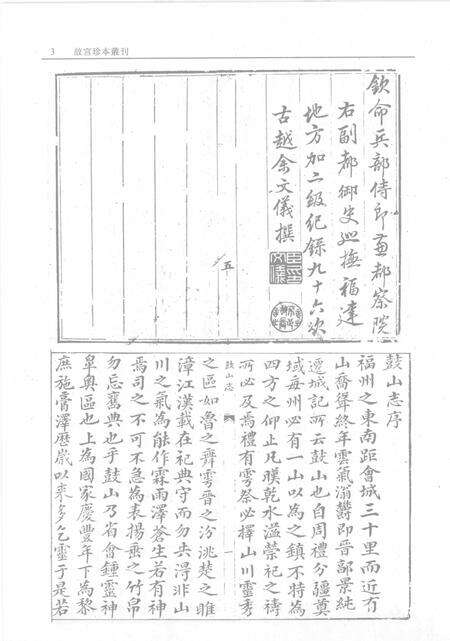 3 故宫珍本叢刊
欽命兵部侍郎兼都察院
右副都御史巡撫福建
地方加二級紀録九十六次
古越余文儀撰
五
鼓山志序
福州之東南距會城三十里而近有
山喬聳終年雲氣滃欝即晉郭景純
遷城記所云鼓山也自周禮分疆奠
域每州必有一山以為之鎮不特為
四方之仰止凡暵乾水溢禜祀之禱
所必及焉禮有雩祭必擇山川靈秀
之區如魯之舞雩晉之汾洮楚之睢
鼓山志
一
漳江漢載在祀典守而勿失得非山
川之氣為能作霖雨澤蒼生若有神
焉司之不可不急為表揚垂之竹帛
勿忘舊典也乎鼓山乃省會鍾靈神
皐奥區也上為國家慶豐年下為黎
庶施膏澤歷歲以來多乞靈于是若